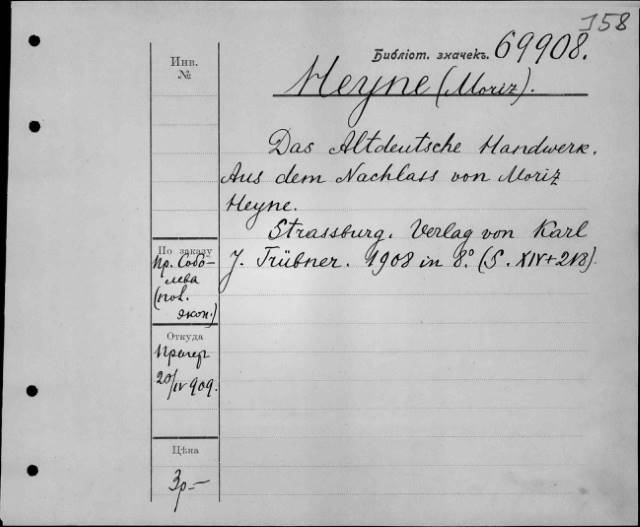 158
Библіот. значекъ. 69908.
Инв.
№
Heyne (Moriz).
Das Altdeutsche Handwerk.
Aus dem Nachlass von Moriz
Heyne.
Strassburg. Verlag von Karl
J. Trübner. 1908 in 8.° (S. XIV+218).
По заказу
Пр. Собо-
лева
(пол.
экон.)
Откуда
20/IV 909.
Цѣна
3р.-